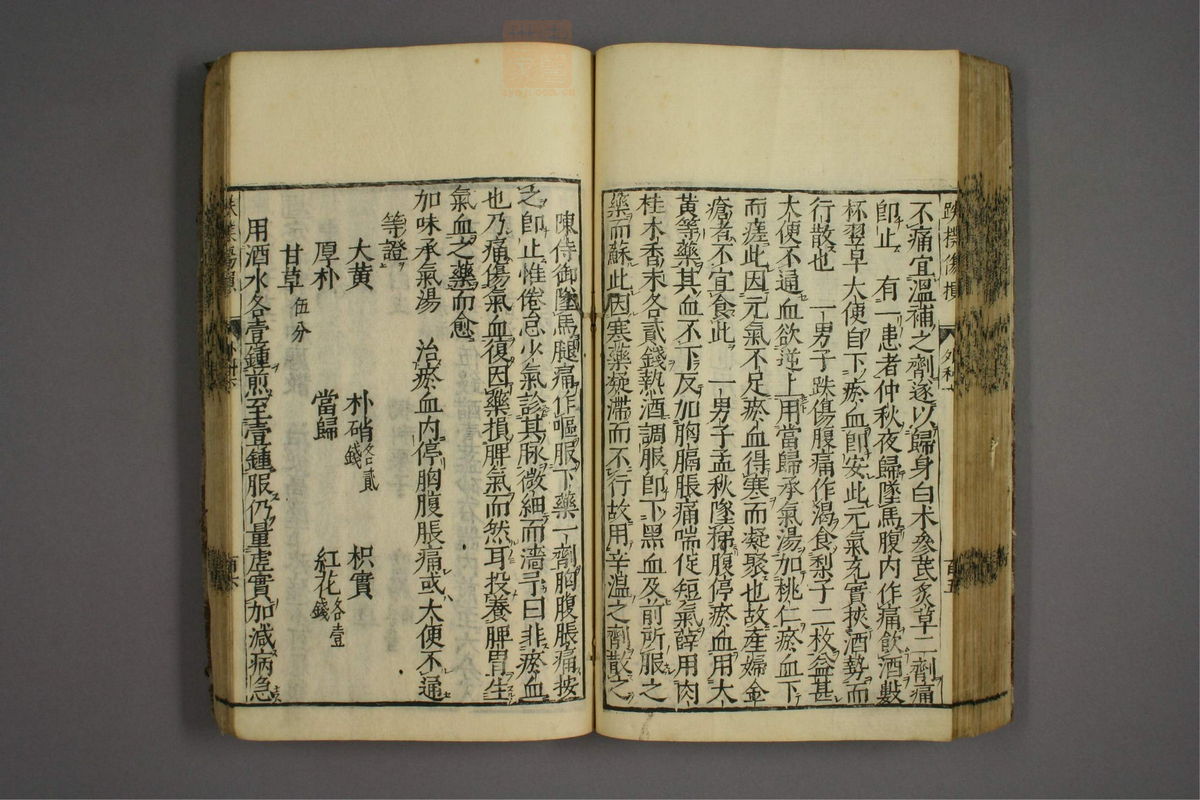 不痛宜溫補之劑遂以歸身白朮參芪炙草二劑痛
即止 有一患者仲秋夜歸墜馬腹内作痛飲酒數
杯翌早大便自下瘀血即安此元氣充實挾酒勢而
行散也 一男子跌傷腹痛作渴食梨子二枚益甚
大便不通血欲逆上用當歸承氣湯加桃仁瘀血下
而瘥此因元氣不足瘀血得寒而凝聚也故產婦金
瘡者不宜食此 一男子孟秋墜梯腹停瘀血用大
黃等藥其血不下反加胸膈脹痛喘促短氣薛用肉
桂木香末各貳錢熱酒調服即下黑血及前所服之
藥而蘇此因寒藥凝滯而不行故用辛溫之劑散之
陳侍御墜馬腿痛作嘔服下藥一劑胸腹脹痛按
之即止惟倦怠少氣診其脉微細而濇予曰非瘀血
也乃痛傷氣血復因藥損脾氣而然耳投養脾胃生
氣血之藥而愈
加味承氣湯 治瘀血内停胸腹脹痛或大便不通
等證
大黄 朴硝各貳錢 枳實
厚朴 當歸 紅花各壹錢
甘草伍分
用酒水各壹鍾煎至壹鍾服仍量虛實加減病急